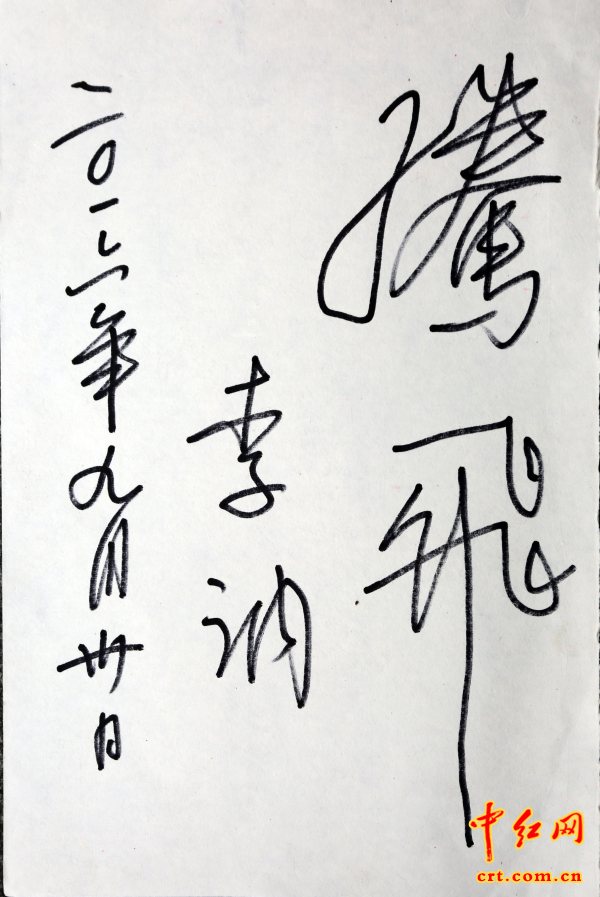 騰飛
李讷
二〇一六年九月卅日
中红网
crt.com.cn